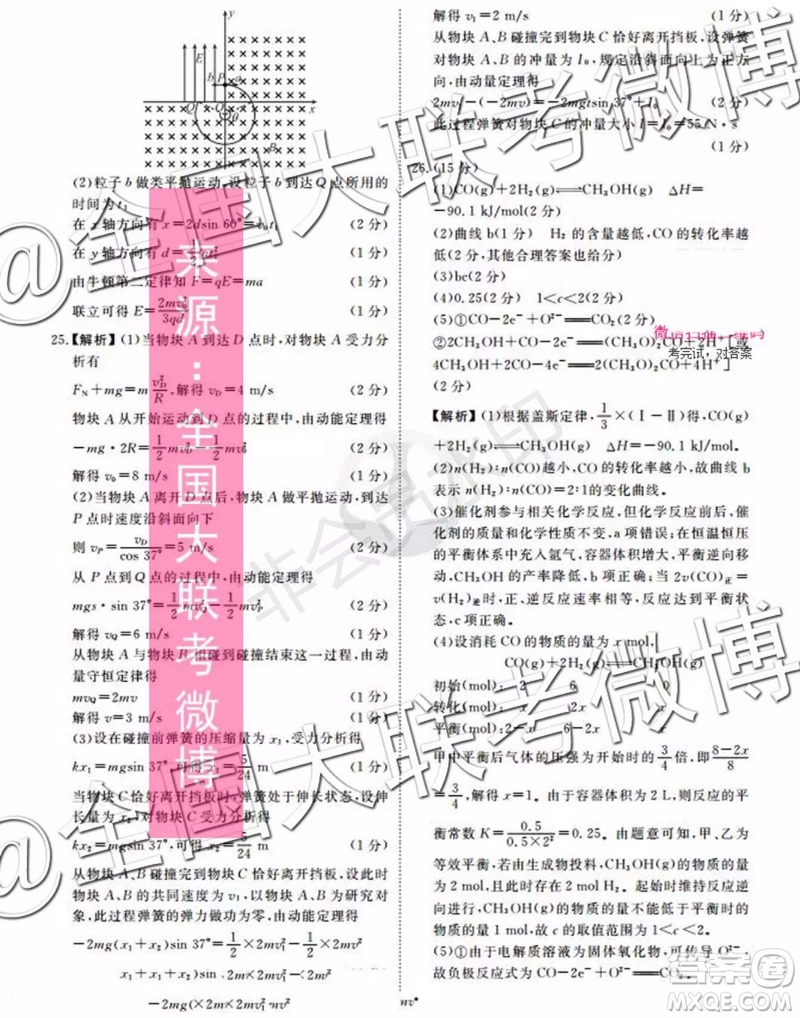 y
E
b
P
a
O
Q
x
θ
B
(2)粒子b做类平抛运动,设粒子b到达Q点所用的
时间为t₁
在x轴方向有x=2dsin 60°=v₀t₁ (2分)
在y轴方向有d= (2分)
由牛顿第二定律知F=qE=ma (1分)
联立可得E=2mv₀²/3qd (1分)
25.【解析】(1)当物块A到达D点时,对物块A受力分
析有
F_N+mg=m v_D²/R,解得v_D=4 m/s (2分)
物块A从开始运动到D点的过程中,由动能定理得
−mg·2R=1/2 mv_D²−1/2 mv₀² (2分)
解得v₀=8 m/s (1分)
(2)当物块A离开D点后,物块A做平抛运动,到达
P点时速度沿斜面向下
则v_P=v_D/cos 37°=5 m/s (1分)
从P点到Q点的过程中,由动能定理得
mgs·sin 37°=1/2 mv_Q²−1/2 mv_P² (2分)
解得v_Q=6 m/s (1分)
从物块A与物块B相碰到碰撞结束这一过程,由动
量守恒定律得
mv_Q=2mv (1分)
解得v=3 m/s (1分)
(3)设在碰撞前弹簧的压缩量为x₁,受力分析得
kx₁=mgsin 37°,可得x₁=5/24 m (1分)
当物块C恰好离开挡板时,弹簧处于伸长状态,设伸
长量为x₂,对物块C受力分析得
kx₂=mgsin 37°,可得x₂=5/24 m (1分)
从物块A、B碰撞完到物块C恰好离开挡板,设物块
A、B的共同速度为v₁,以物块A、B整体为研究对
象,此过程弹簧的弹力做功为零,由动能定理得
−2mg(x₁+x₂)sin 37°=1/2×2mv₁²−1/2×2mv²
解得v₁=2 m/s (1分)
从物块A、B碰撞完到物块C恰好离开挡板,设弹簧
对物块A、B的冲量为I₀,规定沿斜面向上为正方
向,由动量定理得
2mv₁−(−2mv)=−2mgtsin 37°+I₀ (2分)
此过程弹簧对物块C的冲量大小I=I₀=55 N·s
(1分)
26.(15分)
(1)CO(g)+2H₂(g)⇌CH₃OH(g) ΔH=
−90.1 kJ/mol(2分)
(2)曲线b(1分) H₂的含量越低,CO的转化率越
低(2分,其他合理答案也给分)
(3)bc(2分)
(4)0.25(2分) 1<c<2(2分)
(5)①CO−2e⁻+O²⁻═CO₂(2分)
②2CH₃OH+CO−2e⁻═(CH₃O)₂CO+2H⁺[或
4CH₃OH+2CO−4e⁻═2(CH₃O)₂CO+4H⁺]
(2分)
考完试,对答案
【解析】(1)根据盖斯定律,1/3×(Ⅰ−Ⅱ)得CO(g)
+2H₂(g)⇌CH₃OH(g) ΔH=−90.1 kJ/mol。
(2)n(H₂):n(CO)越小,CO的转化率越小,故曲线b
表示n(H₂):n(CO)=2:1的变化曲线。
(3)催化剂参与相关化学反应,但化学反应前后,催
化剂的质量和化学性质不变,a项错误;在恒温恒压
的平衡体系中充入氩气,容器体积增大,平衡逆向移
动,CH₃OH的产率降低,b项正确;当2v(CO)正=
v(H₂)逆时,正、逆反应速率相等,反应达到平衡状
态,c项正确。
(4)设消耗CO的物质的量为x mol,
CO(g)+2H₂(g)⇌CH₃OH(g)
初始(mol): 2 6 0
转化(mol): x 2x x
平衡(mol):2−x 6−2x x
甲中平衡后气体的压强为开始时的3/4倍,即(8−2x)/8
=3/4,解得x=1。由于容器体积为2 L,则反应的平
衡常数K=0.5/(0.5×2²)=0.25。由题意可知,甲、乙为
等效平衡,若由生成物投料,CH₃OH的物质的量
为2 mol,且还存在2 mol H₂。起始时维持反应逆
向进行,CH₃OH的物质的量不能低于平衡时的
物质的量1 mol,故c的取值范围为1<c<2。
(5)①由于电解质溶液为固体氧化物,可传导O²⁻,
故负极反应式为CO−2e⁻+O²⁻═CO₂。
@全国大联考微博
@全国大联考微博
来源:全国大联考微博
非会员水印
答案圈
MXQE.COM